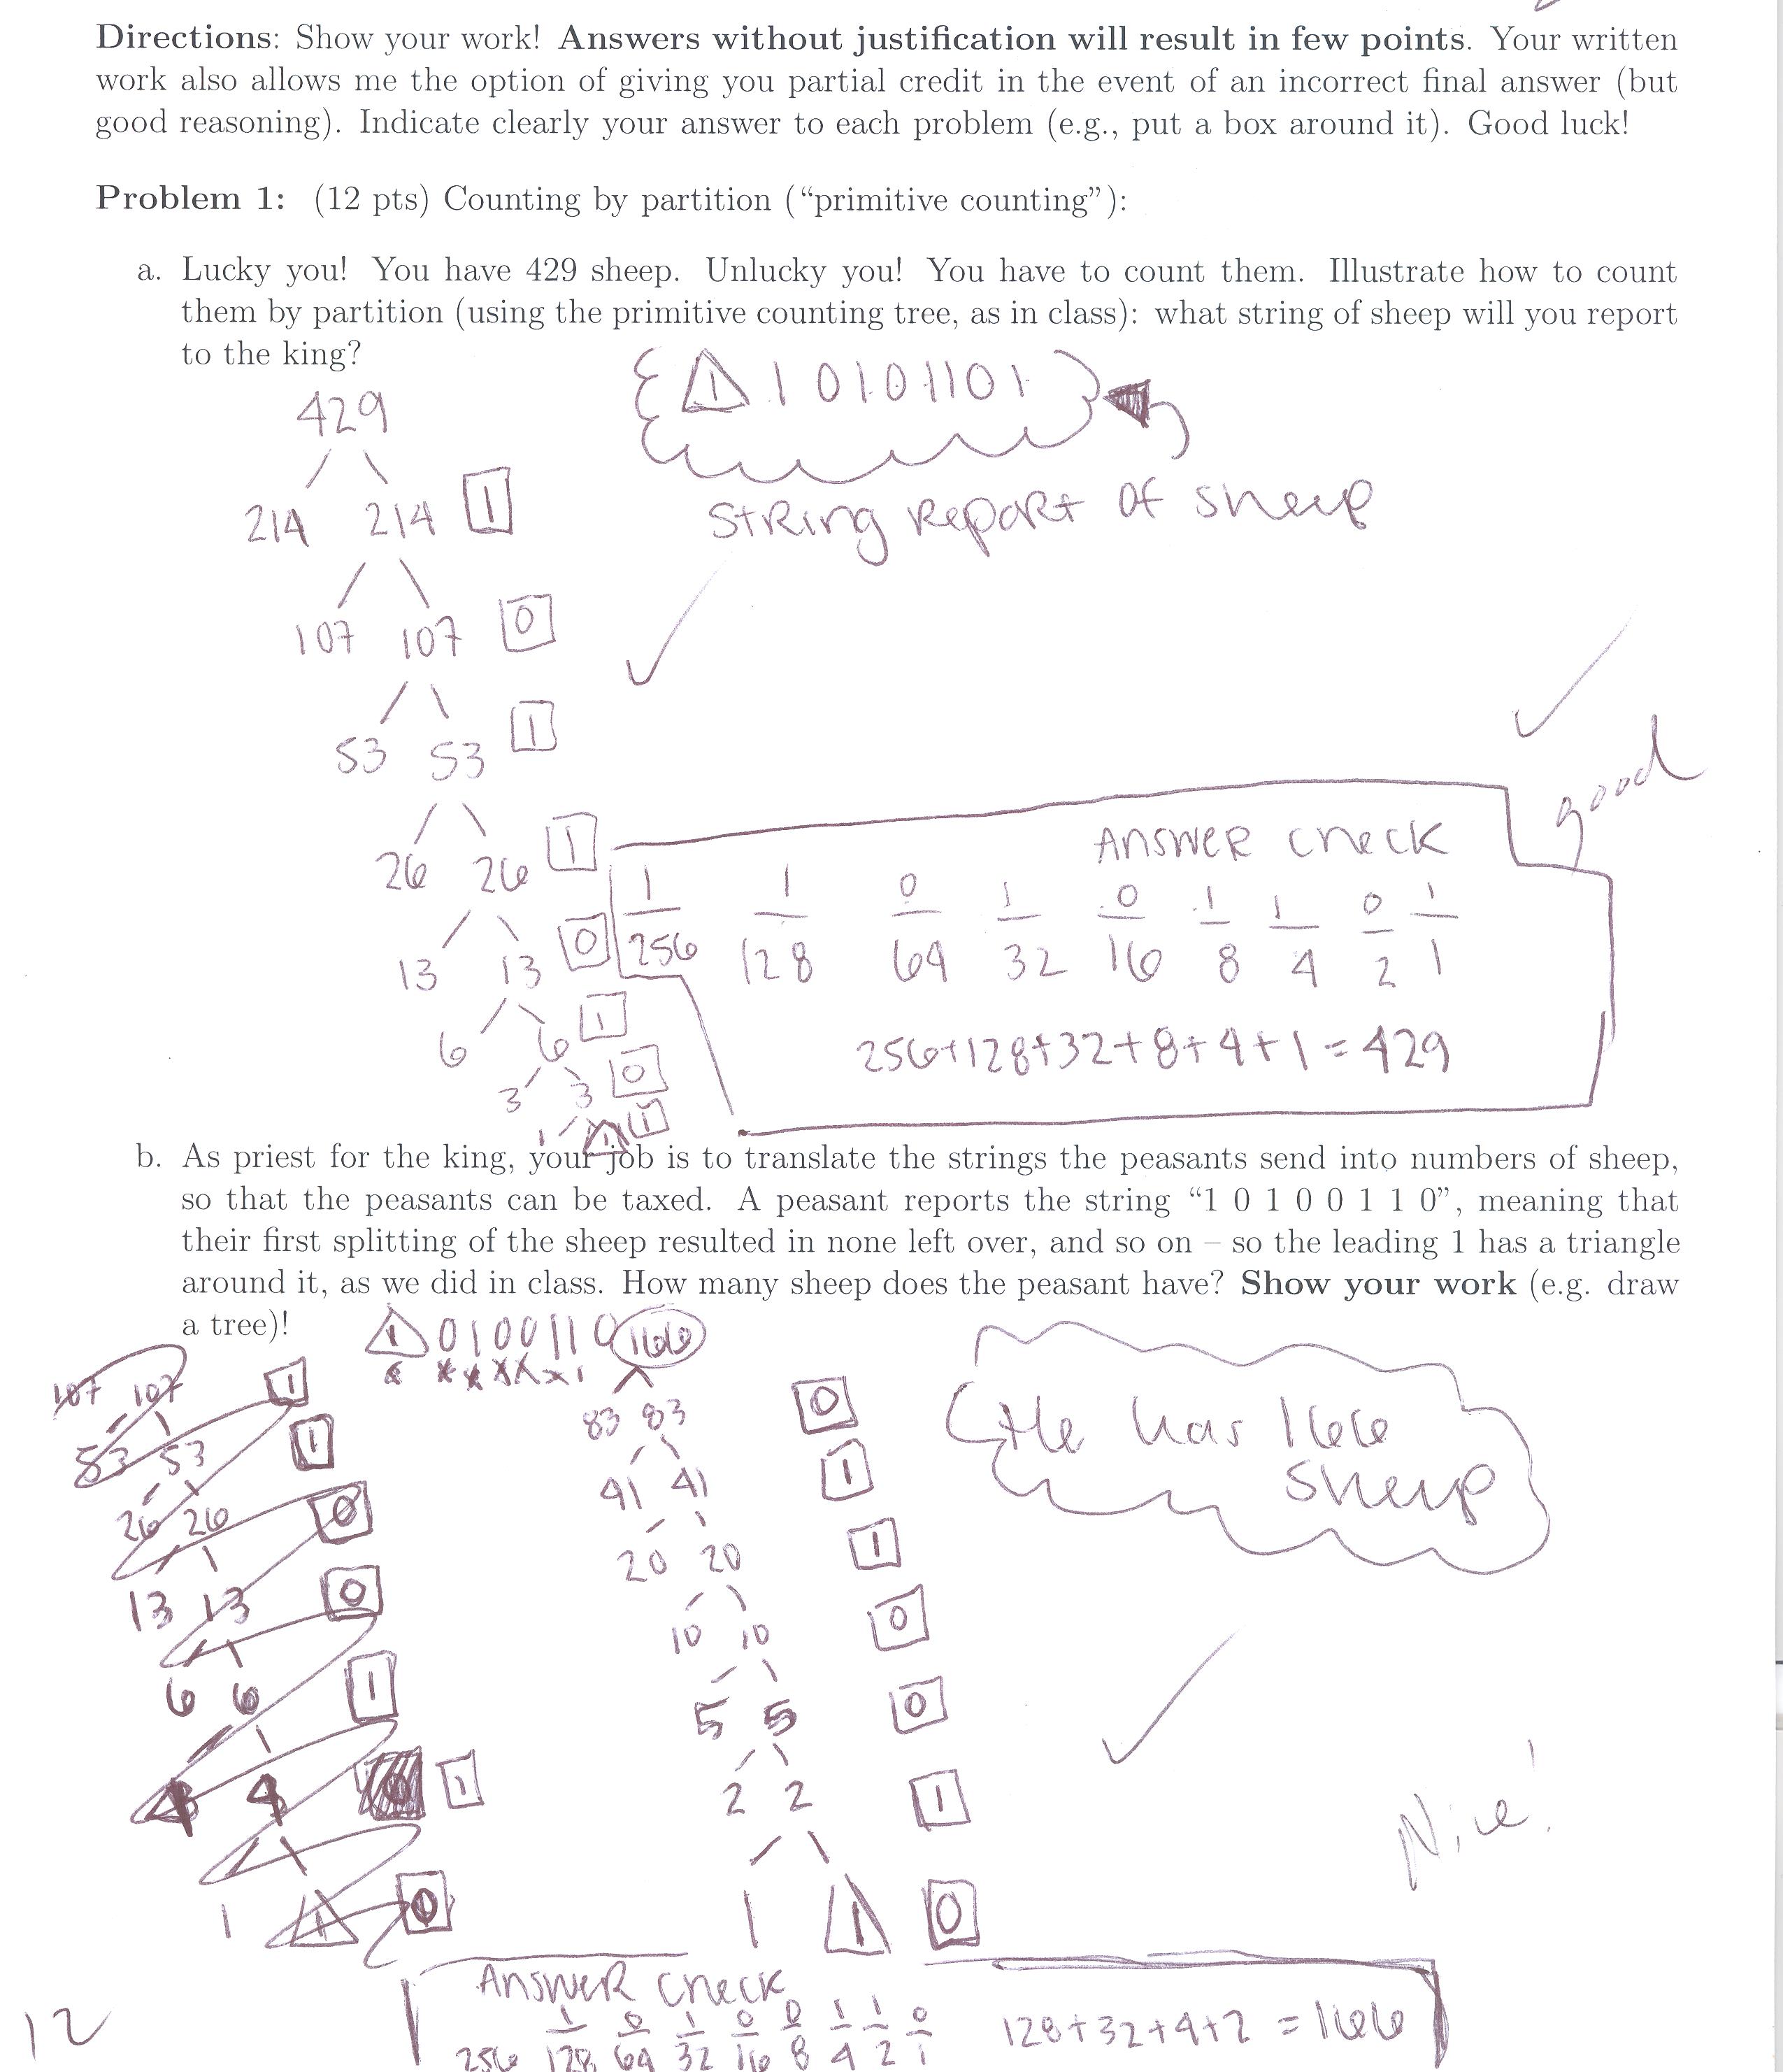 Directions: Show your work! Answers without justification will result in few points. Your written
work also allows me the option of giving you partial credit in the event of an incorrect final answer (but
good reasoning). Indicate clearly your answer to each problem (e.g., put a box around it). Good luck!
Problem 1: (12 pts) Counting by partition (“primitive counting”):
a. Lucky you! You have 429 sheep. Unlucky you! You have to count them. Illustrate how to count
them by partition (using the primitive counting tree, as in class): what string of sheep will you report
to the king?
1 1 0 1 0 1 1 0 1
String report of sheep
429
214 214 1
107 107 0
53 53 1
26 26 1
13 13 0
6 6 1
3 3 0
1 1 1
good
Answer check
1 1 0 1 0 1 1 0 1
256 128 64 32 16 8 4 2 1
256+128+32+8+4+1=429
b. As priest for the king, your job is to translate the strings the peasants send into numbers of sheep,
so that the peasants can be taxed. A peasant reports the string “1 0 1 0 0 1 1 0”, meaning that
their first splitting of the sheep resulted in none left over, and so on – so the leading 1 has a triangle
around it, as we did in class. How many sheep does the peasant have? Show your work (e.g. draw
a tree)!
1 0 1 0 0 1 1 0
107 107 1
53 53 1
26 26 0
13 13 0
6 6 1
4 1
1 1 0
166
83 83 0
41 41 1
20 20 1
10 10 0
5 5 0
2 2 1
1 1 0
He has 166
sheep
Nice!
Answer check
1 0 1 0 0 1 1 0
256 128 64 32 16 8 4 2 1
128+32+4+2=166
12